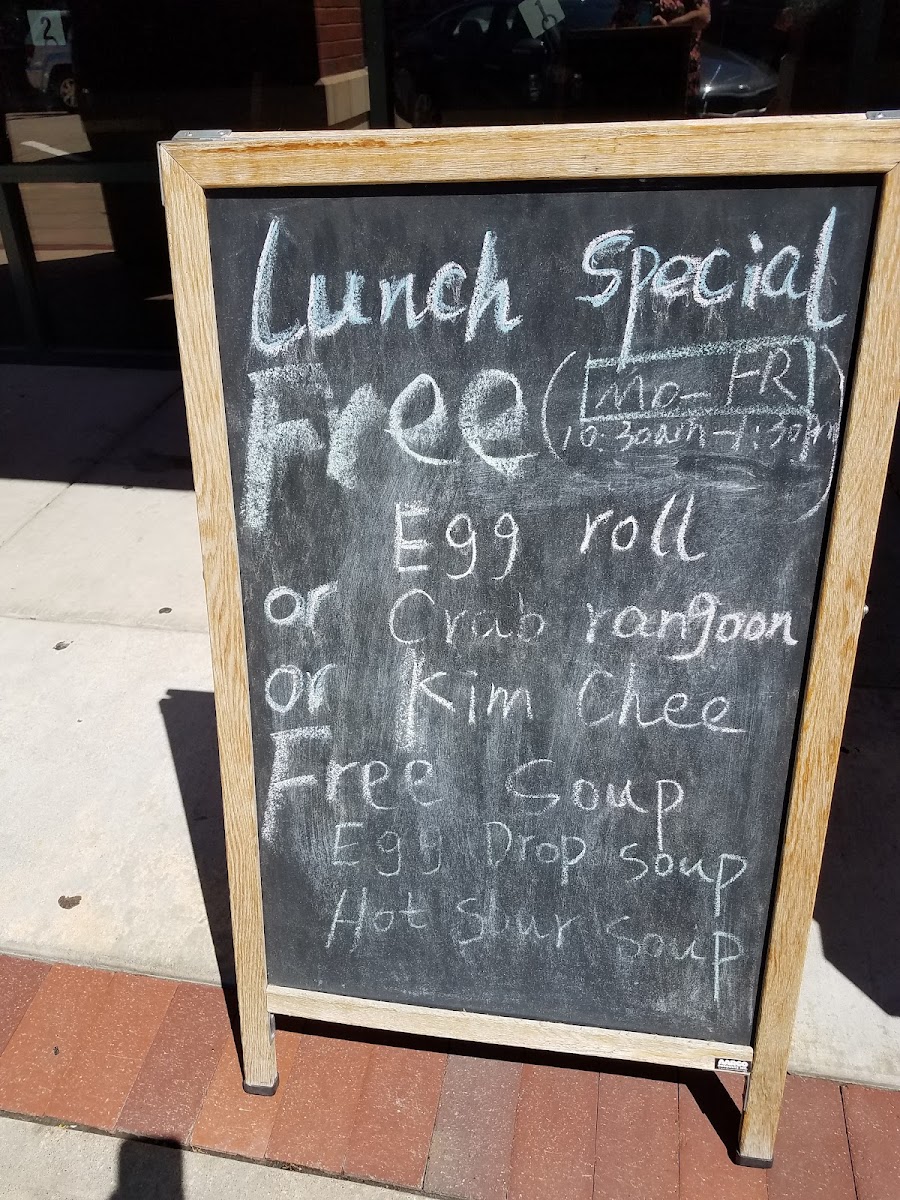 2
1
Lunch Special
Free (Mo-FR
10:30am-1:30pm)
Egg roll
or Crab rangoon
or Kim Chee
Free Soup
Egg Drop soup
Hot Sour Soup
AARCO